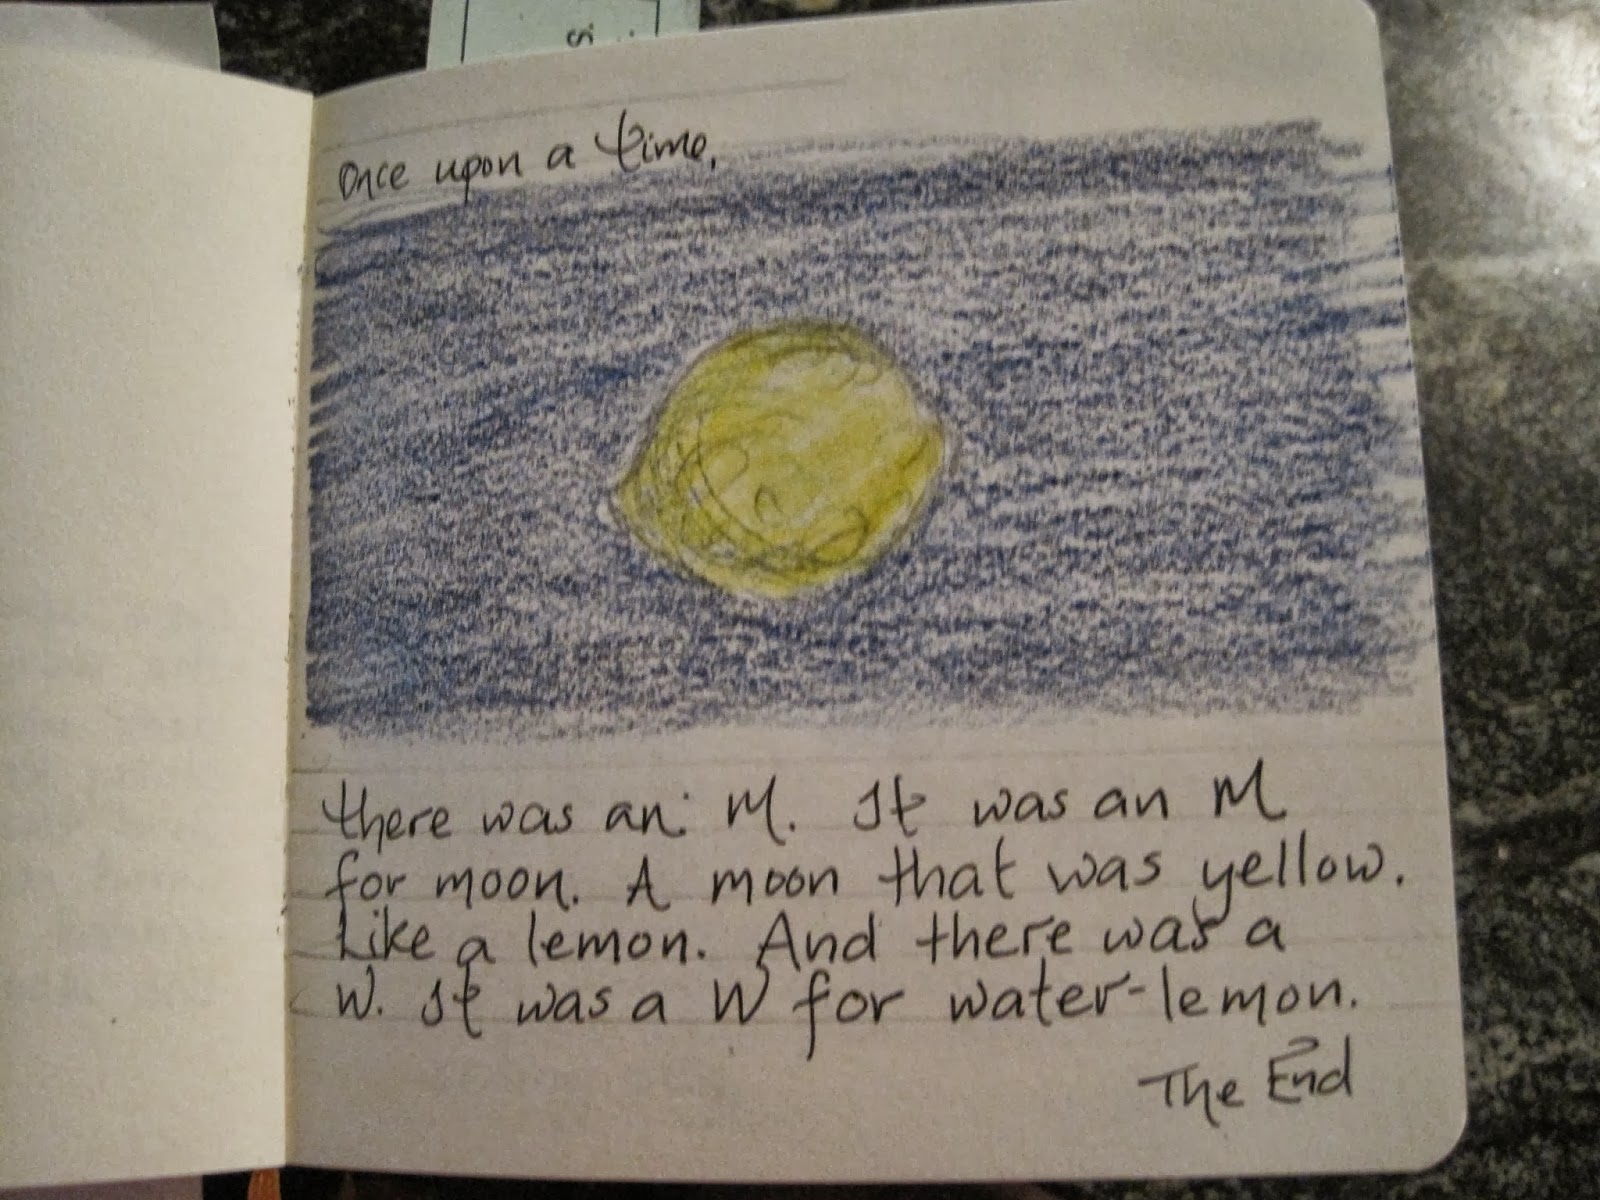 Once upon a time,
there was an: M. It was an M
for moon. A moon that was yellow.
Like a lemon. And there was a
W. It was a W for water-lemon.
The End